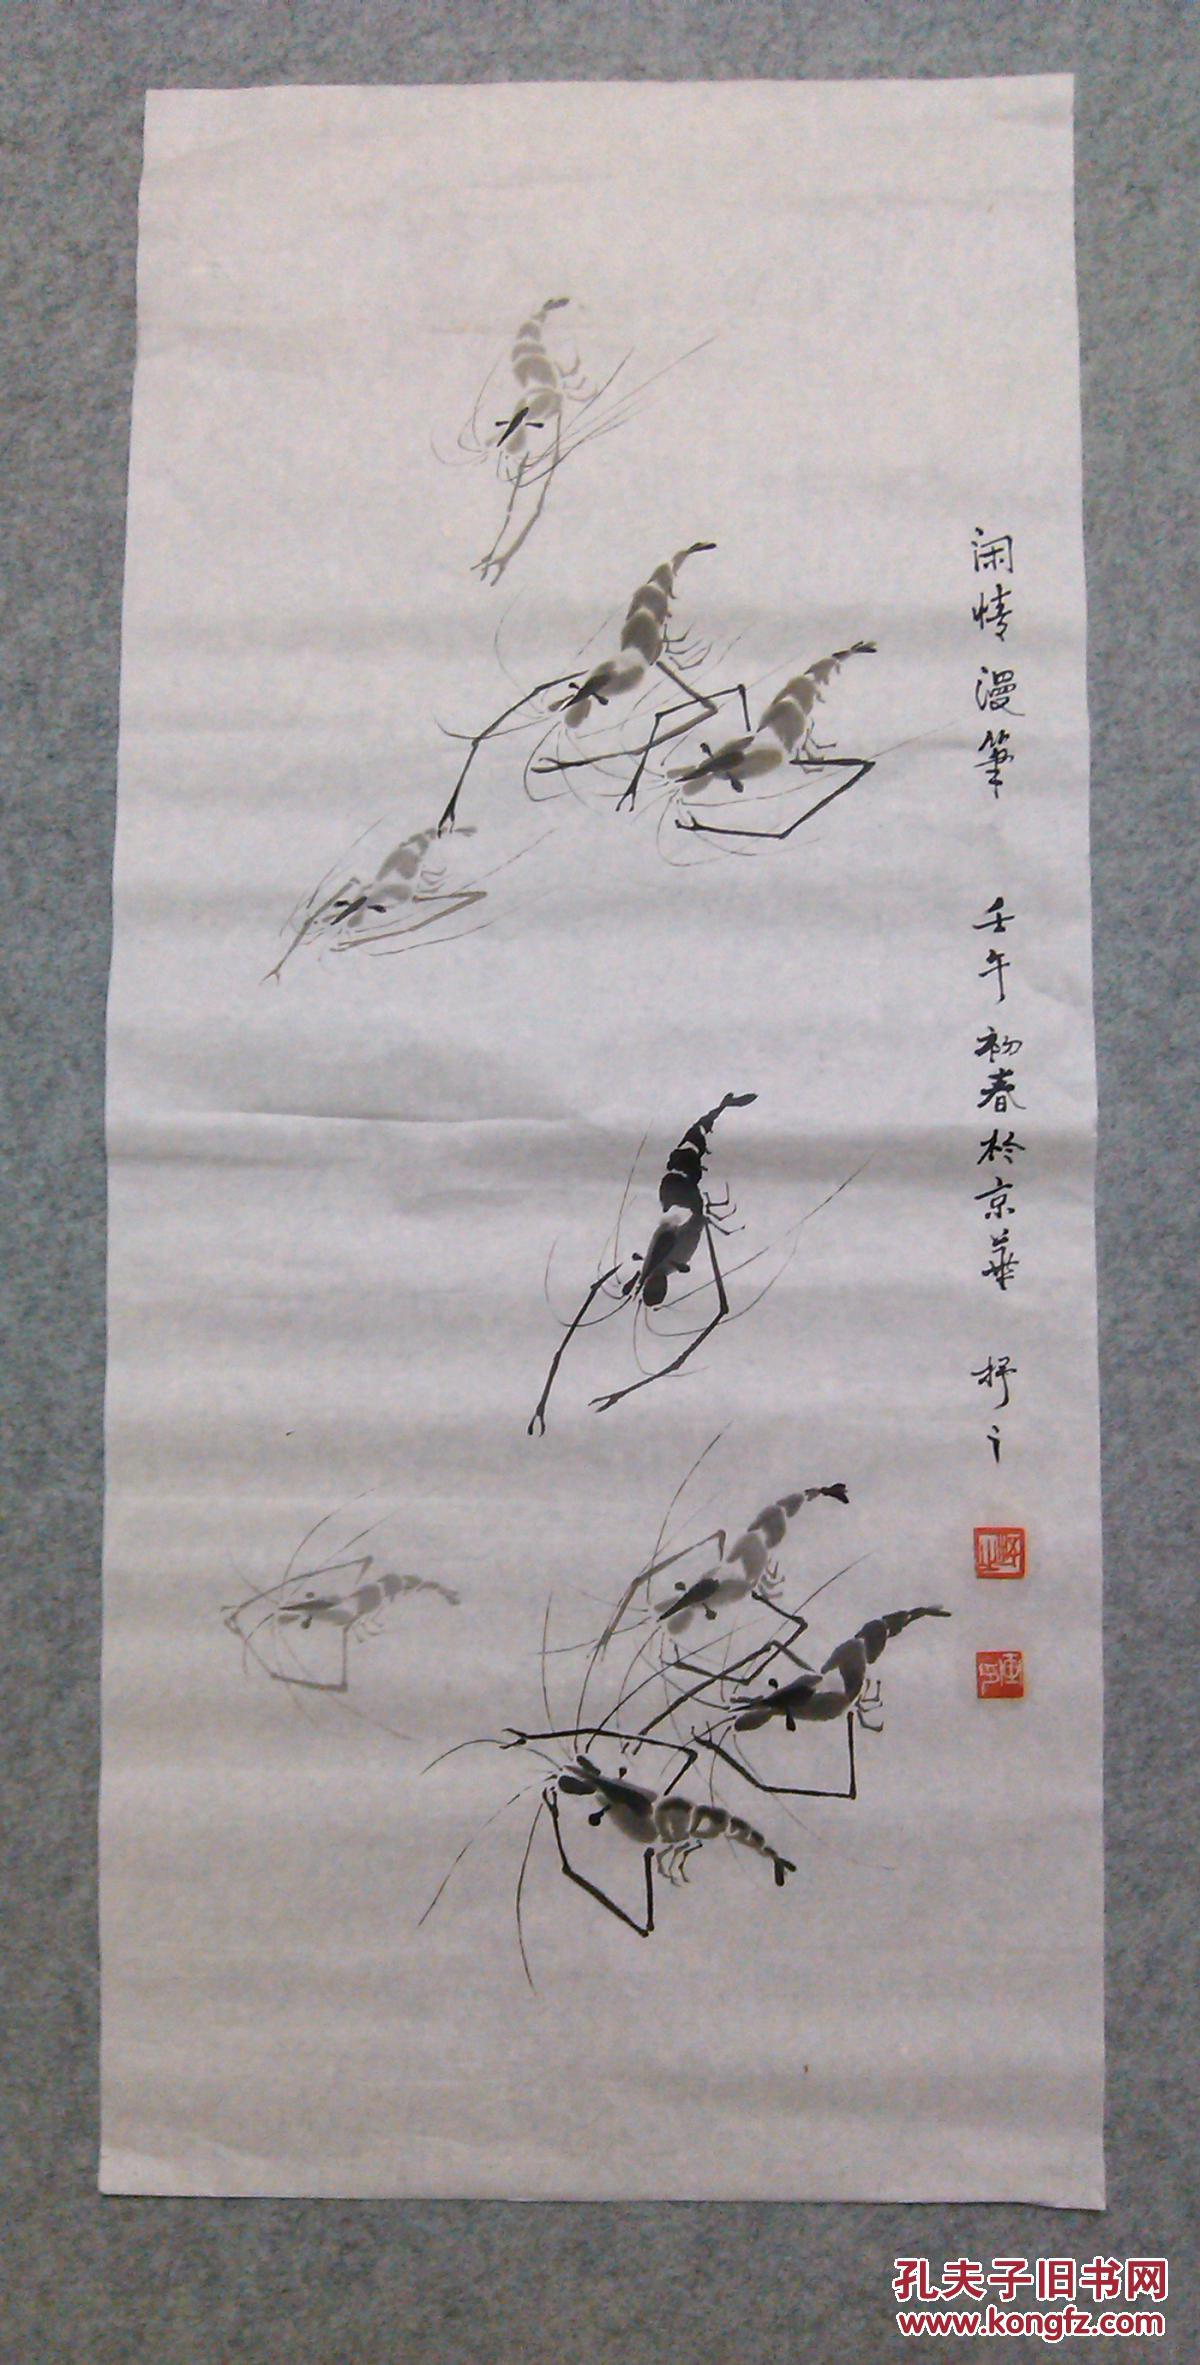 闲情漫筆 壬午初春於京華
孔夫子旧书网
www.kongfz.com